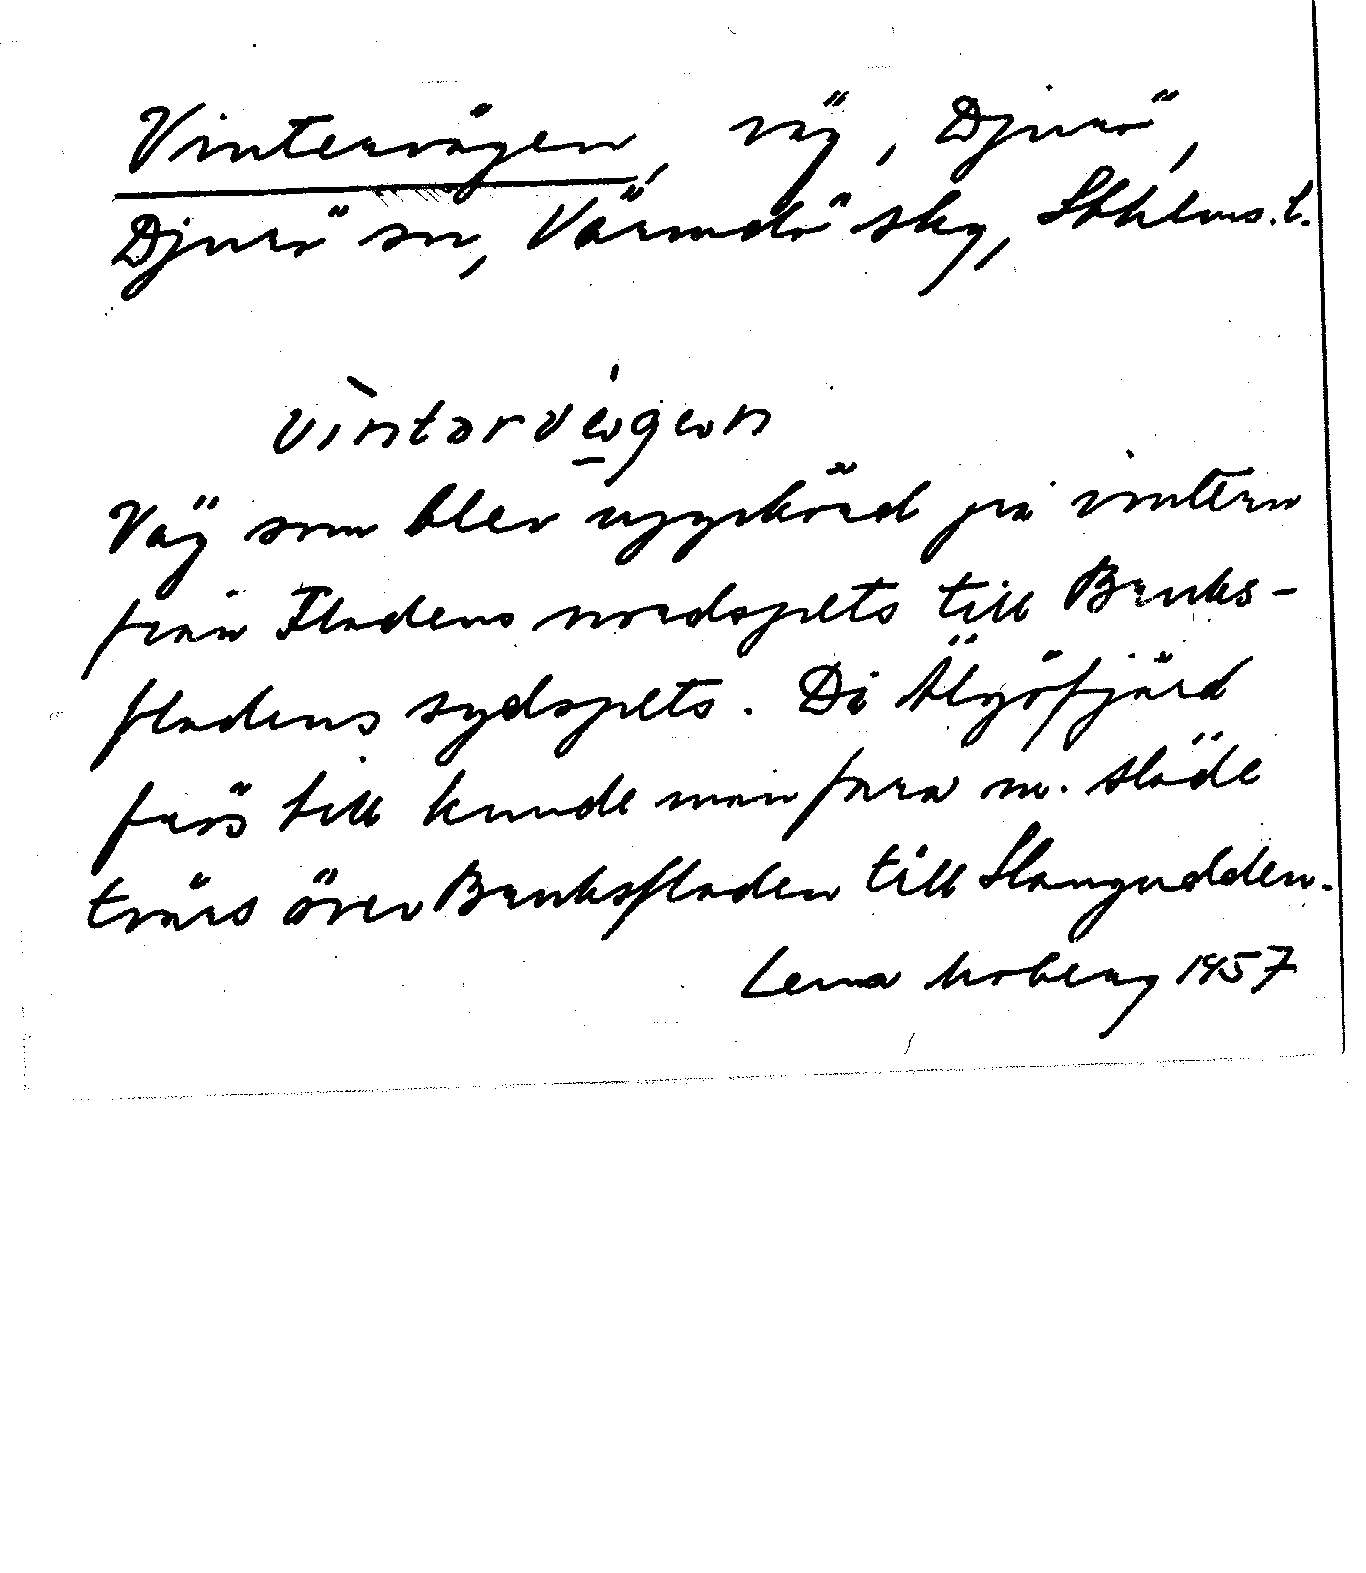 Vintervägen, väg, Djurö,
Djurö sn, Värmdö skg, Sthlms. l.
Väg som blev uppkörd på vintern
från Fladens nordspets till Bruks-
fladens sydspets. Då Älgöfjärd
frös till kunde man fara m. släde
tvärs över Bruksfladen till Slangudden.
Lena Moberg 1957